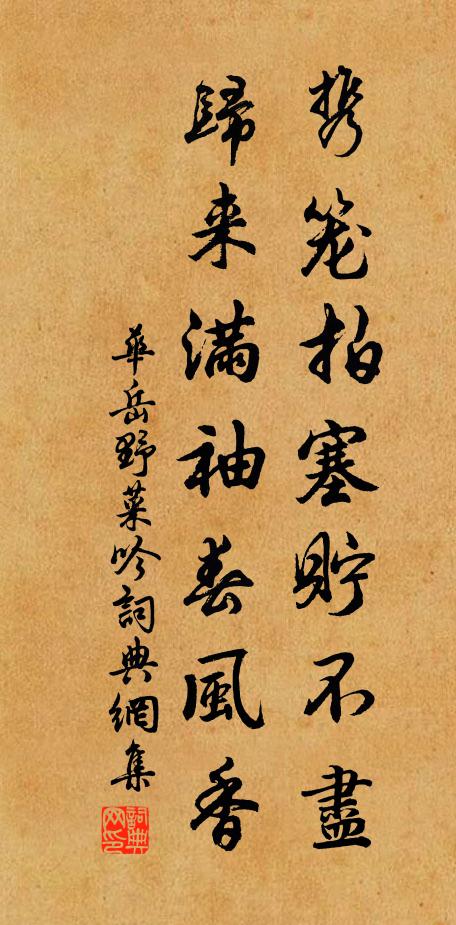 携笼拍塞貯不盡
歸来滿袖春風香
華岳野菜吟詞典網集
詞典网印